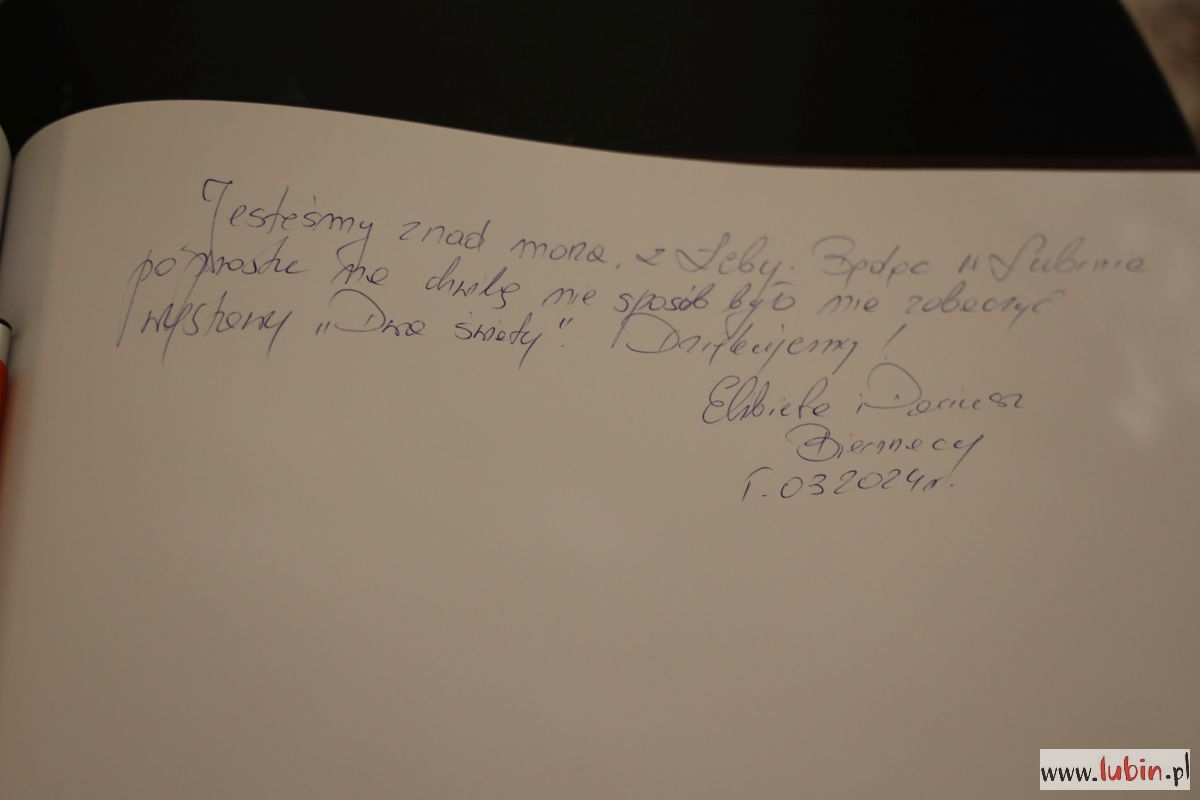 Jesteśmy znad morza, z Łeby. Będąc w Lubinie
po prostu na chwilę nie sposób było nie zobaczyć
wystawy „Dwa światy". Dziękujemy!
Elżbieta i Dariusz
Biernaccy
03 2024 r.
www.lubin.pl